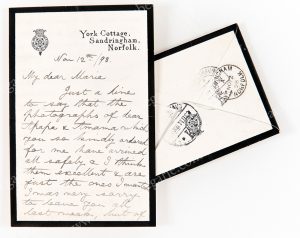 York Cottage,
Sandringham,
Norfolk.
Nov 12th/98.
My dear Marie
Just a line
to say that the
photographs of dear
Apapa & Amama which
you so kindly ordered
for me have arrived
all safely & I think
them excellent & are
just the ones I wanted
I was very sorry
to leave you all
last week, but